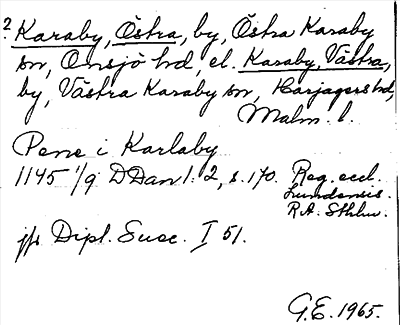 ? Karaby, Östra, by, Östra Karaby
sn, Onsjö hd, el. Karaby, Västra,
by, Västra Karaby sn, Harjagers hd,
Malm. l.
Pene i Karlaby
1145 1/9 DDan 1:2, s. 170. Reg. eccl.
Lundensis.
R.A. Sthlm.
jfr Dipl. Suec. I 51.
G.E. 1965.